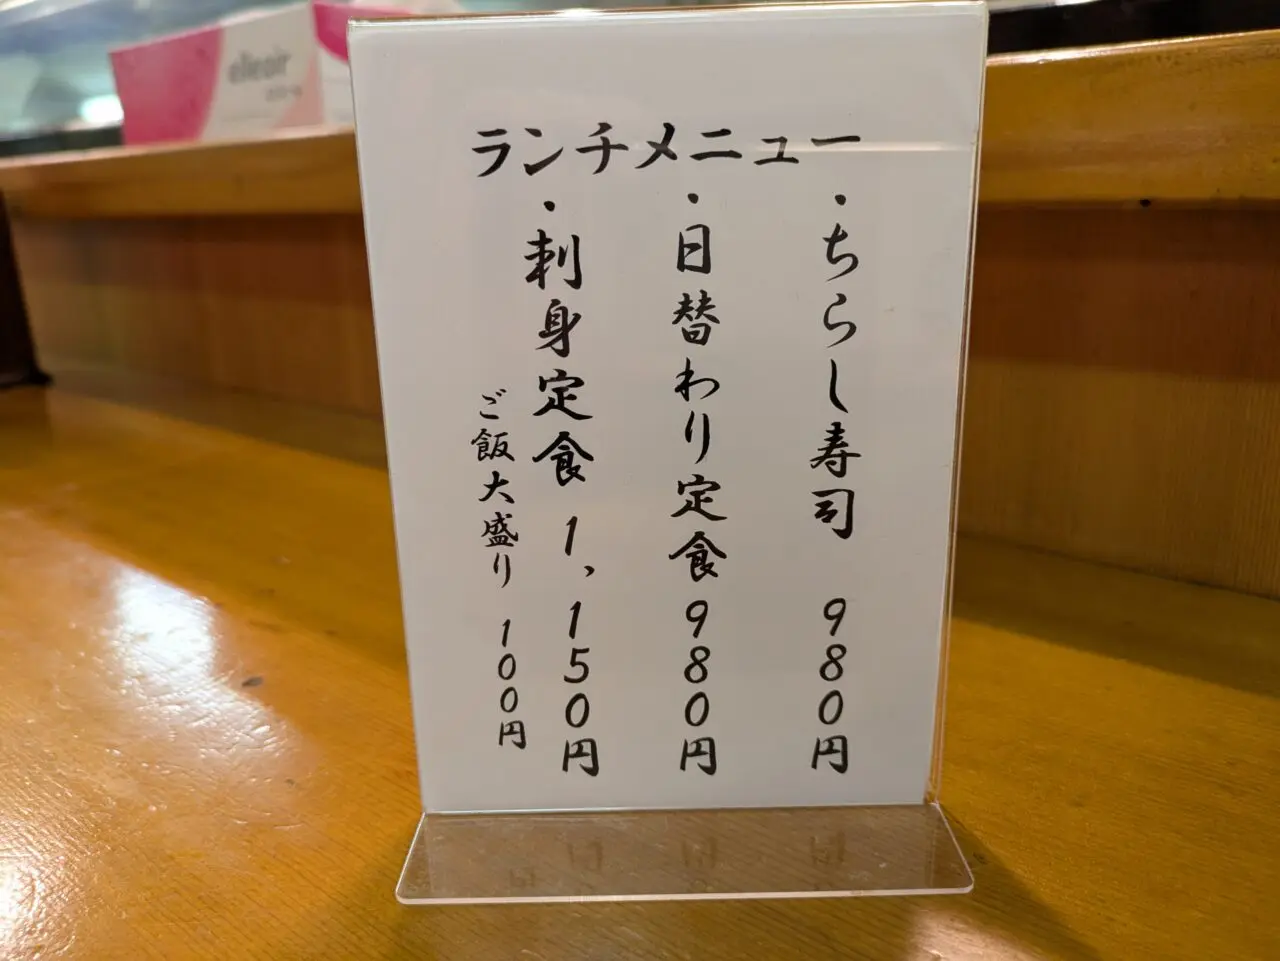 ランチメニュー
・ちらし寿司 980円
・日替わり定食 980円
・刺身定食 1,150円
ご飯大盛り 100円
elleair